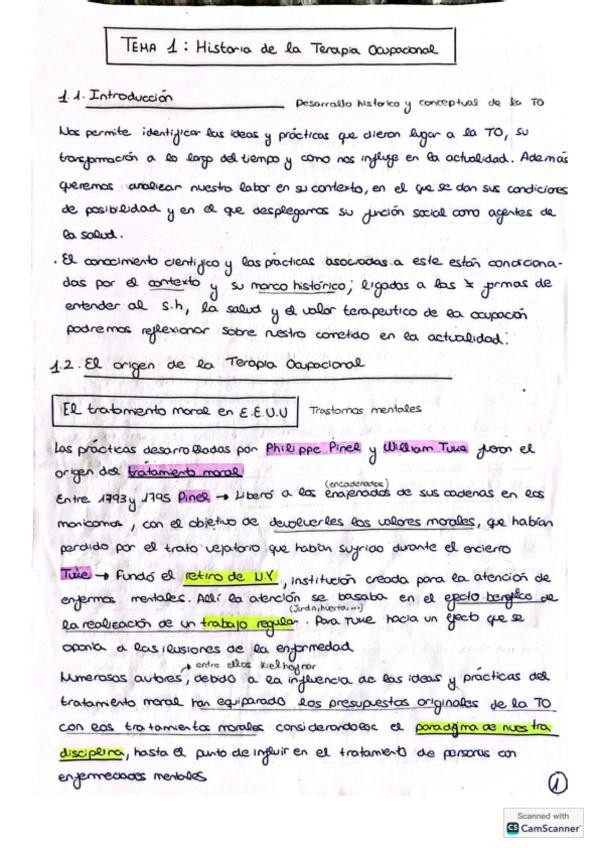 TEMA 1: Historia de la Terapia Ocupacional
1.1. Introducción
Desarrollo historico y conceptual de la TO
Nos permite identificar las ideas y prácticas que dieron lugar a la TO, su
transformación a lo largo del tiempo y como nos influye en la actualidad. Además
queremos analizar nuestra labor en su contexto, en el que se dan sus condiciones
de posibilidad y en el que desplegamos su función social como agentes de
la salud.
· El conocimiento cientifico y las prácticas asociadas a este están condiciona-
das por el contexto y su marco histórico; ligados a las formas de
entender al s.h, la salud y el valor terapeutico de la ocupación
podremos reflexionar sobre nuestro cometido en la actualidad.
1.2. El origen de la Terapia Ocupacional
El tratamiento moral en E.E.U.U
Trastornos mentales
Las prácticas desarrolladas por Philippe Pinel y William Tuke fueron el
origen del tratamiento moral
(encadenados)
Entre 1793 y 1795 Pinel → Liberó a los enajenados de sus cadenas en los
manicomios, con el objetivo de devolverles los valores morales, que habían
perdido por el trato vejatorio que habían sufrido durante el encierro
Tuke → Fundó el retiro de , institución creada para la atención de
enfermos mentales. Allí la atención se basaba en el efecto benefico de
(Jardín, huerta...)
la realización de un trabajo regular. Para Tuke hacia un efecto que se
oponía a las ilusiones de la enfermedad
→ entre ellos Kielhofner
Numerosos autores, debido a la influencia de las ideas y prácticas del
tratamiento moral han equiparado los presupuestos originales de la TO
con los tratamientos morales considerandolos el paradigma de nuestra
disciplina, hasta el punto de influir en el tratamiento de personas con
enfermedades mentales
1
Scanned with
CS CamScanner